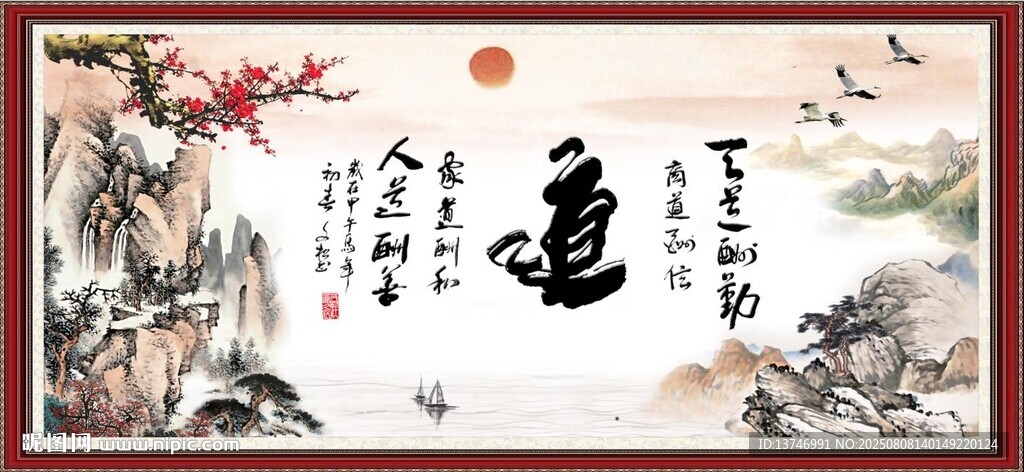 天道酬勤
商道酬信
道
家道酬和
人道酬善
岁在甲午马年
初春
昵图网 www.nipic.com
ID:13746991 NO:20250808140149220124